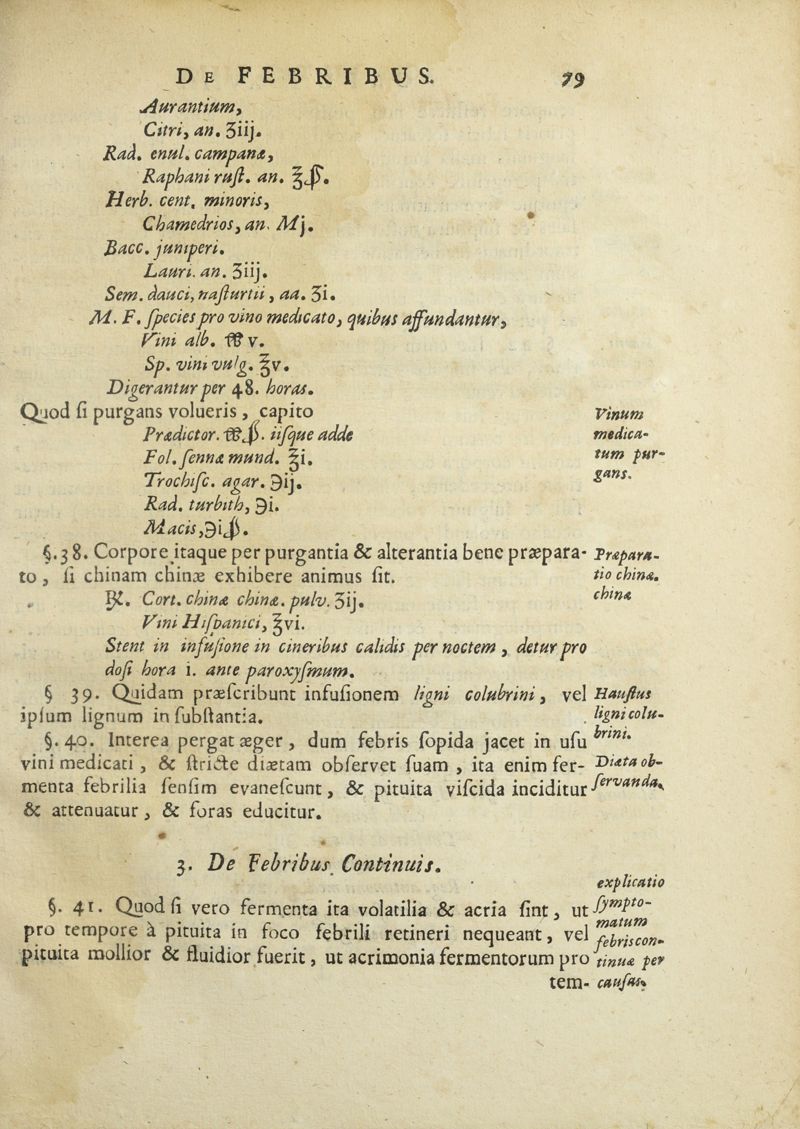 DE FEBRIBUS. 79
Aurantium,
Citri, an. ʒiij.
Rad. enul. campanæ,
Raphani ruſt. an. ℥ß.
Herb. cent. minoris,
Chamedrios, an. Mj.
Bacc. juniperi.
Lauri. an. ʒiij.
Sem. dauci, naſturtii, aa. ʒi.
M. F. ſpecies pro vino medicato, quibus affundantur,
Vini alb. ℔ v.
Sp. vini vulg. ℥v.
Digerantur per 48. horas.
Quod ſi purgans volueris, capito
Prædictor. ℔ß. iiſque adde
Fol. ſennæ mund. ℥i.
Trochiſc. agar. ℈ij.
Rad. turbith, ℈i.
Macis, ℈iß.
Vinum
medica-
tum pur-
gans.
§. 38. Corpore itaque per purgantia & alterantia bene præpara-
to, ſi chinam chinæ exhibere animus ſit.
℞. Cort. chinæ chinæ. pulv. ʒij.
Vini Hiſpanici, ℥vi.
Stent in infuſione in cineribus calidis per noctem, detur pro
doſi hora i. ante paroxyſmum.
Præpara-
tio chinæ.
chinæ
§ 39. Quidam præſcribunt infuſionem ligni colubrini, vel
ipſum lignum in ſubſtantia.
Hauſtus
ligni colu-
brini.
§. 40. Interea pergat æger, dum febris ſopida jacet in uſu
vini medicati, & ſtricte diætam obſervet ſuam, ita enim fer-
menta febrilia ſenſim evaneſcunt, & pituita viſcida inciditur
& attenuatur, & foras educitur.
Diæta ob-
ſervanda.
3. De Febribus Continuis.
§. 41. Quod ſi vero fermenta ita volatilia & acria ſint, ut
pro tempore à pituita in foco febrili retineri nequeant, vel
pituita mollior & fluidior fuerit, ut acrimonia fermentorum pro
tem-
explicatio
ſympto-
matum
febris con-
tinuæ per
cauſas.